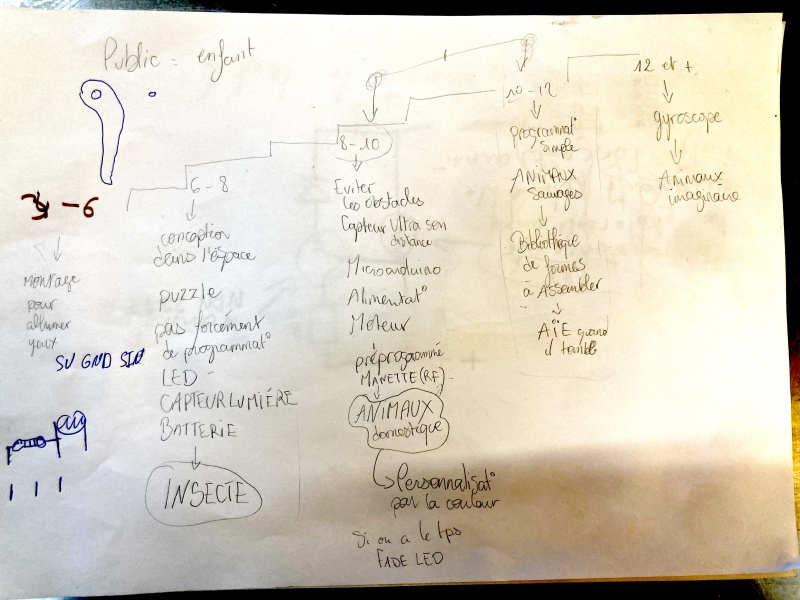 Public = enfant
- 6
Montage
pour
allumer
yeux
5V GND SIN
6 - 8
conception
dans l'éspace
puzzle
pas forcément
de programmat°
LED
CAPTEUR LUMIÈRE
BATTERIE
INSECTE
8 - 10
Eviter
les obstacles
Capteur Ultra son
distance
Microarduino
Alimentat°
Moteur
préprogrammé
MANETTE (RF)
ANIMAUX
domestique
Personnalisat°
par la couleur
Si on a le tps
FADE LED
10 - 12
programmat°
simple
ANIMAUX
sauvages
Bibliothèque
de formes
à Assembler
AÏE quand
il tombe
12 et +
gyroscope
Animaux
imaginaire